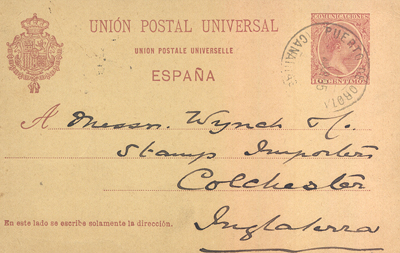 UNIÓN POSTAL UNIVERSAL
UNION POSTALE UNIVERSELLE
ESPAÑA
COMUNICACIONES
10 CENTIMOS
CANARIAS
A Messrs. Wynch
Stamp Importers
Colchester
Inglaterra
En este lado se escribe solamente la dirección.